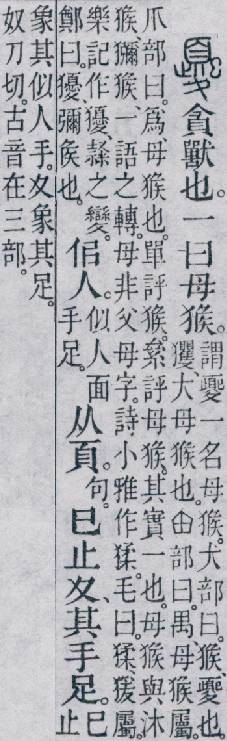 夒貪獸也。一曰母猴。
謂夒一名母猴。犬部曰。猴、夒也。
玃、大母猴也。甶部曰。禺、母猴屬。
爪部曰。爲、母猴也。單評猴。絫評母猴。其實一也。母猴與沐
猴、獼猴、一語之轉。母非父母字。詩小雅作猱。毛曰。猱、猨屬。
樂記作獶。隸之變。
鄭曰。獶、彌侯也。
佀人。
似人面
手足。
从頁。
句。
巳止夊、其手足。
巳止
象其似人手。夊象其足。
奴刀切。古音在三部。